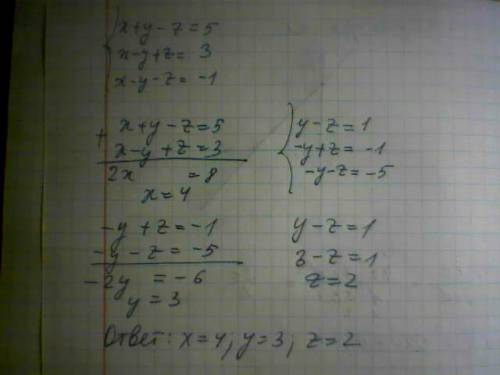 x+y-z=5
x-y+z=3
x-y-z=-1
+ x+y-z=5
x-y+z=3
2x =8
x=4
y-z=1
-y+z=-1
-y-z=-5
-y+z=-1
-y-z=-5
-2y =-6
y=3
y-z=1
3-z=1
z=2
Ответ: x=4, y=3, z=2